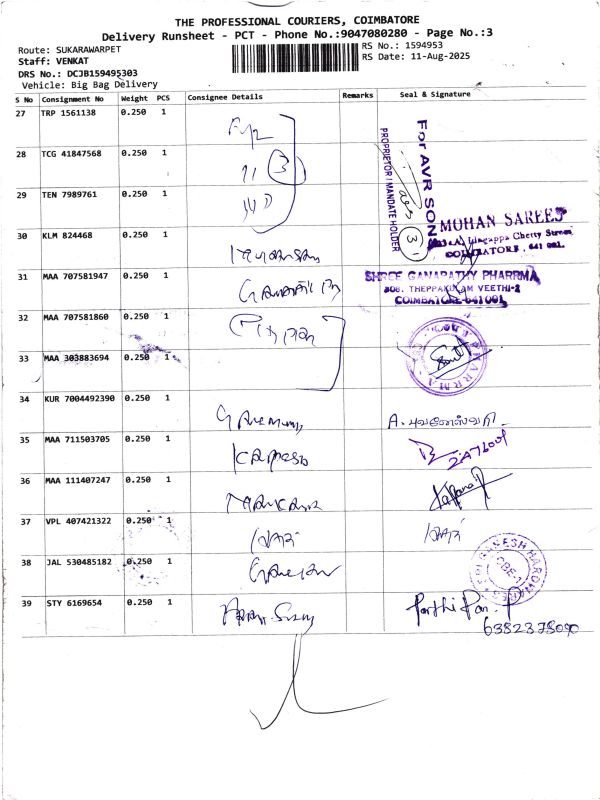 THE PROFESSIONAL COURIERS, COIMBATORE
Delivery Runsheet - PCT - Phone No.:9047080280 - Page No.:3
Route: SUKARAWARPET
RS No.: 1594953
Staff: VENKAT
RS Date: 11-Aug-2025
DRS No.: DCJB159495303
Vehicle: Big Bag Delivery
S No Consignment No Weight PCS Consignee Details Remarks Seal & Signature
27 TRP 1561138 0.250 1
28 TCG 41847568 0.250 1 11 3
29 TEN 7989761 0.250 1
For AVR SONS
PROPRIETOR / MANDATE HOLDER
3
30 KLM 824468 0.250 1
MOHAN SAREES
Lingappa Chetty Street
COIMBATORE. 641 001.
31 MAA 707581947 0.250 1
SHREE GANAPATHY PHARRMA
308, THEPPAKULAM VEETHI-2
COIMBATORE-641001
32 MAA 707581860 0.250 1
33 MAA 303883694 0.250 1
34 KUR 7004492390 0.250 1 A. புவனேஸ்வரி
35 MAA 711503705 0.250 1
36 MAA 111407247 0.250 1
37 VPL 407421322 0.250 1
38 JAL 530485182 0.250 1 Ganesan
SRI GANESH HARDWARES
CBE-1
39 STY 6169654 0.250 1 Parthiban. P
6382378090